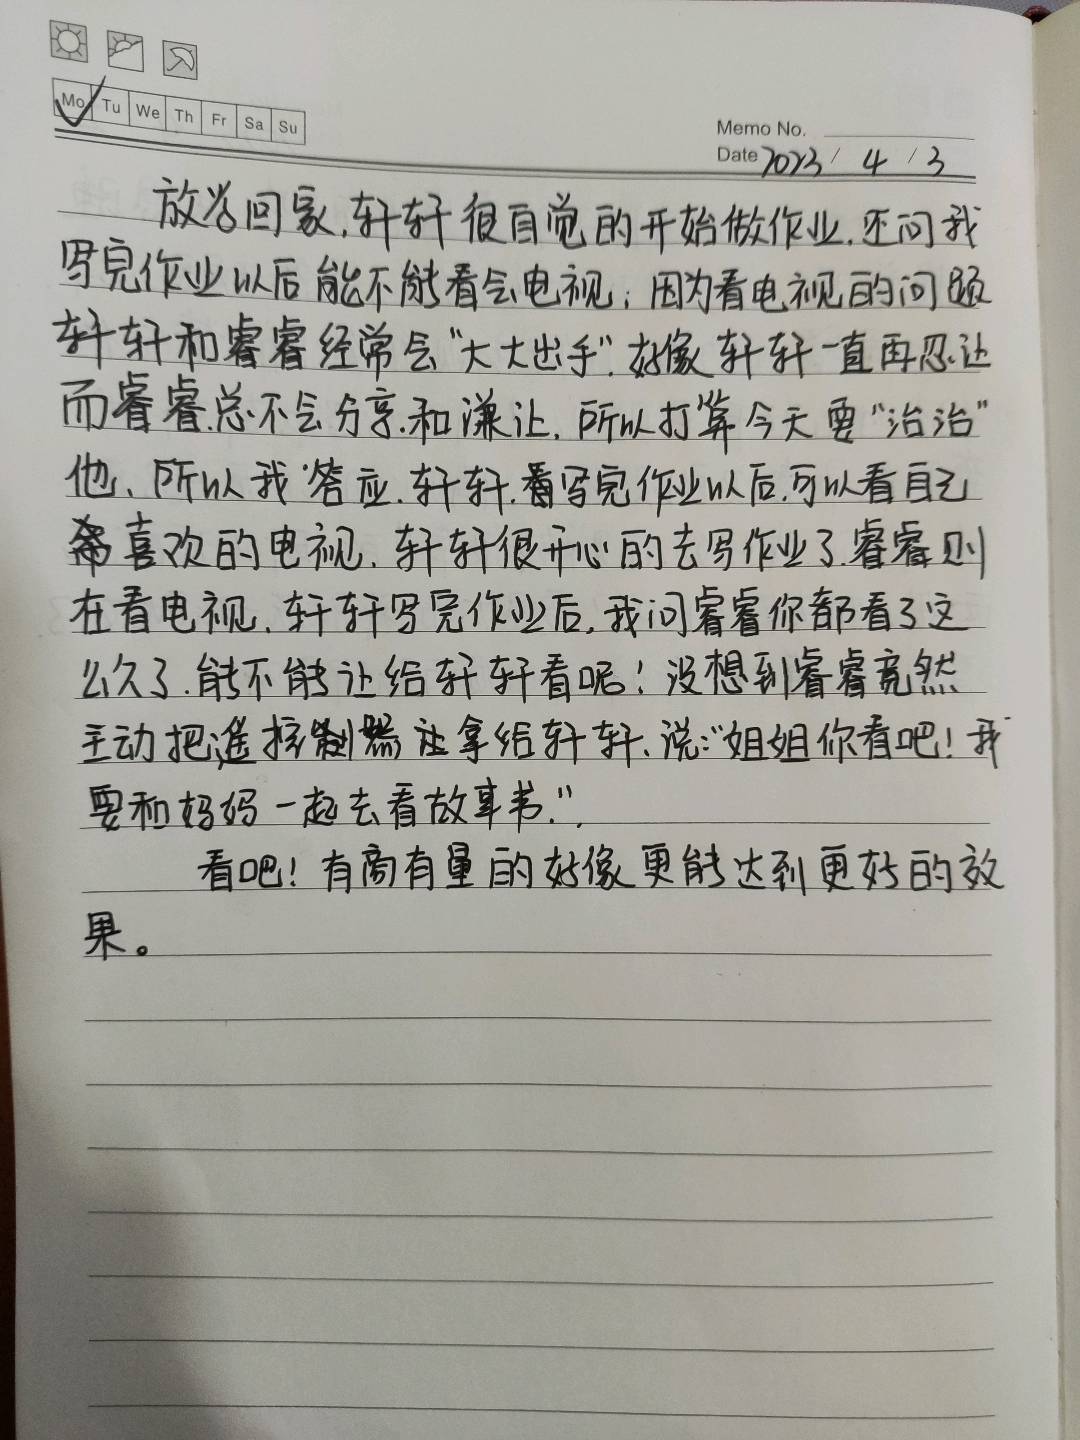 Mo Tu We Th Fr Sa Su
Memo No.
Date 2023 / 4 / 3
放学回家,轩轩很自觉的开始做作业.还问我
写完作业以后能不能看会电视;因为看电视的问题
轩轩和睿睿经常会"大大出手".好像轩轩一直再忍让
而睿睿.总不会分享.和谦让.所以打算今天要"治治"
他、所以我答应.轩轩.看写完作业以后.可以看自己
喜欢的电视.轩轩很开心的去写作业了.睿睿则
在看电视.轩轩写完作业后,我问睿睿你都看了这
么久了.能不能让给轩轩看呢!没想到睿睿竟然
主动把遥控制器让拿给轩轩、说:"姐姐你看吧!我
要和妈妈一起去看故事书."
看吧!有商有量的好像更能达到更好的效
果。